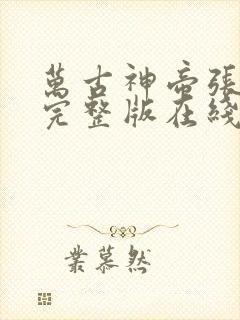 萬古神帝張
完整版在綫
業慕然